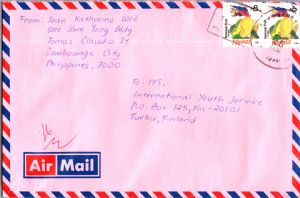 From: Joan Katherine Wee
Wee Sam Yong Bldg.
Tomas Claudio St.
Zamboanga City
Philippines, 7000
To: IYS,
International Youth Service
P.O. Box 125, Fin-20101
Turku, Finland
Air Mail